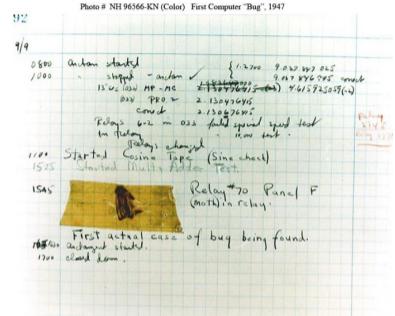 Photo # NH 96566-KN (Color) First Computer "Bug", 1947
92
9/9
0800 antan started
1000 " stopped - antan ✓ { 1.2700 9.037 847 025
9.037 846 995 correct
13"uc (032) MP - MC 2.130476415 (-3) 4.615925059(-2)
033 PRO 2 2.130476415
correct 2.130676415
Relays 6-2 in 033 failed special speed test
in relay " 10.000 test.
Relays changed
1100 Started Cosine Tape (Sine check)
1525 Started Multi Adder Test.
1545 Relay #70 Panel F
(moth) in relay.
First actual case of bug being found.
1630 antangent started.
1700 closed down.